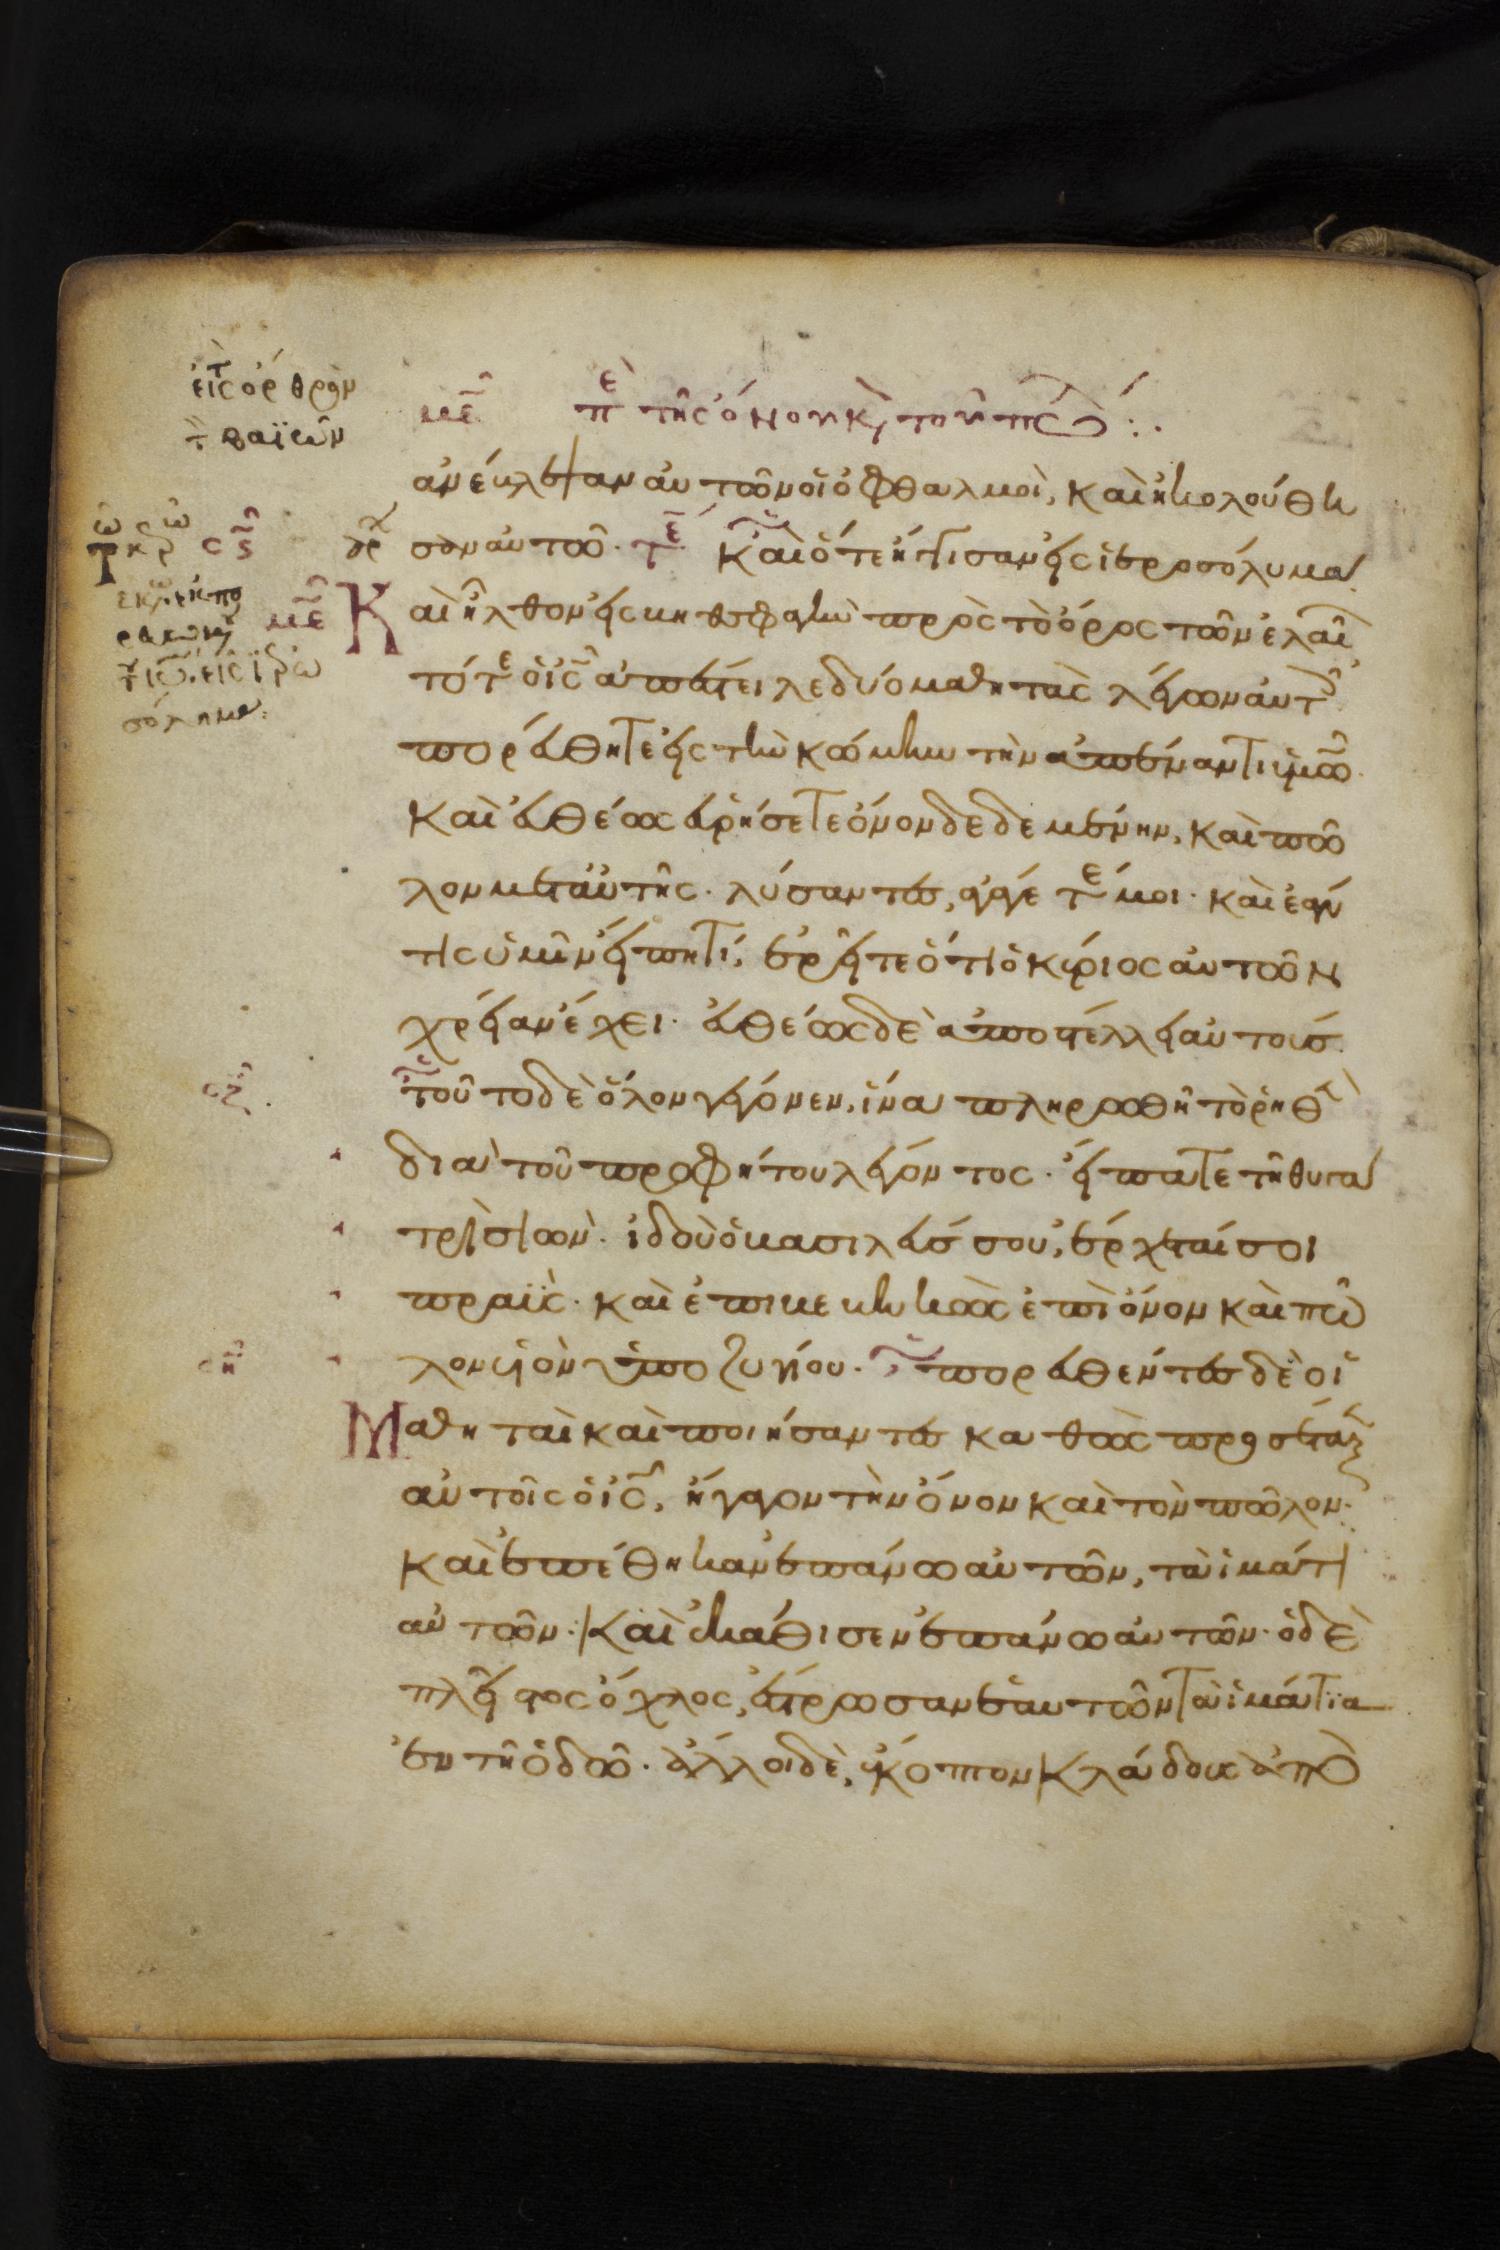 εἰς τ ὄρθρον
τ βαϊῶν
με πε τῆς ὄνου κ τοῦ πώλου :·
ἀνέβλεψαν αὐτῶν οἱ ὀφθαλμοὶ, καὶ ἠκολούθη
σϛ ἀρχ σαν αὐτῶ. τε Καὶ ὅτε ἤγγισαν εἰς ἱεροσόλυμα
με Καὶ ἦλθον εἰς βηθσφαγὴ πρὸς τὸ ὄρος τῶν ἐλαι
τότε ὁ ι̅ς̅ ἀπέστειλε δύο μαθητὰς λέγων αὐτ
πορεύθητε εἰς τὴν κώμην τὴν ἀπέναντι ὑμῶν.
Καὶ εὐθέως εὑρήσετε ὄνον δεδεμένην, καὶ πῶ
λον μετ αὐτῆς. λύσαντες, ἀγάγετέ μοι. καὶ ἐάν
τις ὑμῖν εἴπη τί, ἐρεῖτε ὅτι ὁ κύριος αὐτῶν
χρείαν ἔχει. εὐθέως δὲ ἀποστέλλει αὐτούς.
σζ τοῦτο δὲ ὅλον γέγονεν, ἵνα πληρωθῆ τὸ ῥηθ
διὰ τοῦ προφήτου λέγοντος. εἴπατε τῆ θυγα
τρὶ σιὼν. ἰδοὺ ὁ βασιλεύς σου, ἔρχεταί σοι
πραϋς. καὶ ἐπιβεβηκὼς ἐπὶ ὄνον καὶ πῶ
ση λον υἱὸν ὑποζυγίου. πορευθέντες δὲ οἱ
Μαθηταὶ καὶ ποιήσαντες καθὼς προσέταξ
αὐτοῖς ὁ ι̅ς̅, ἤγαγον τὴν ὄνον καὶ τὸν πῶλον.
καὶ ἐπέθηκαν ἐπάνω αὐτῶν, τὰ ἱμάτι
αὐτῶν. Καὶ ἐκάθισεν ἐπάνω αὐτῶν. ὁ δὲ
πλεῖστος ὄχλος, ἔστρωσαν ἑαυτῶν τὰ ἱμάτια
ἐν τῆ ὁδῶ. ἄλλοι δὲ, ἔκοπτον κλάδους ἀπὸ